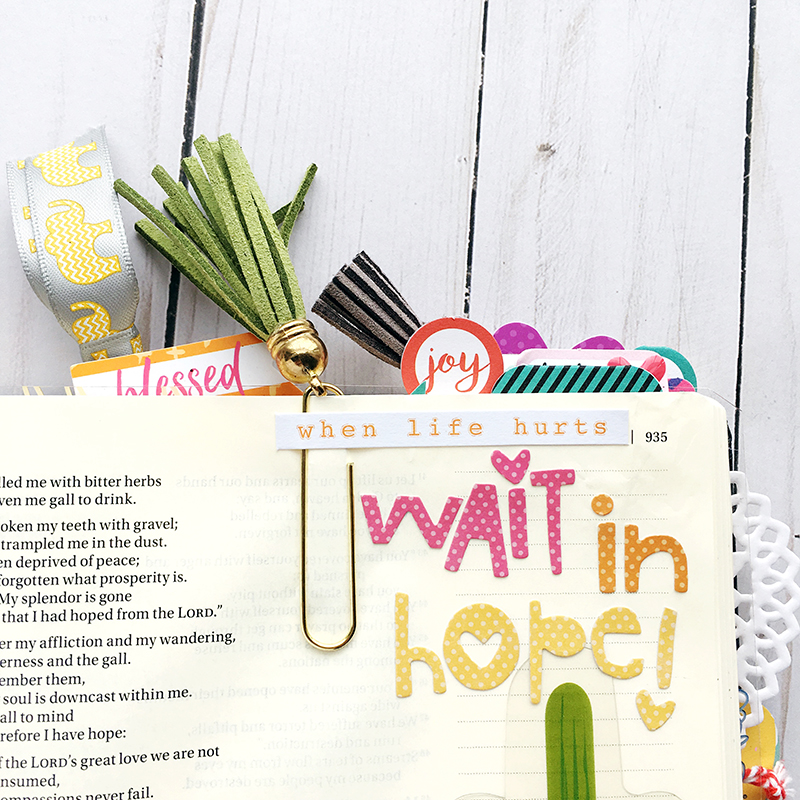 blessed
joy
when life hurts
| 935
wAiT
in
hope!
lled me with bitter herbs
ven me gall to drink.
oken my teeth with gravel;
trampled me in the dust.
en deprived of peace;
forgotten what prosperity is.
My splendor is gone
that I had hoped from the LORD.”
er my affliction and my wandering,
erness and the gall.
ember them,
soul is downcast within me.
all to mind
erefore I have hope:
f the LORD’s great love we are not
nsumed,
ompassions never fail.